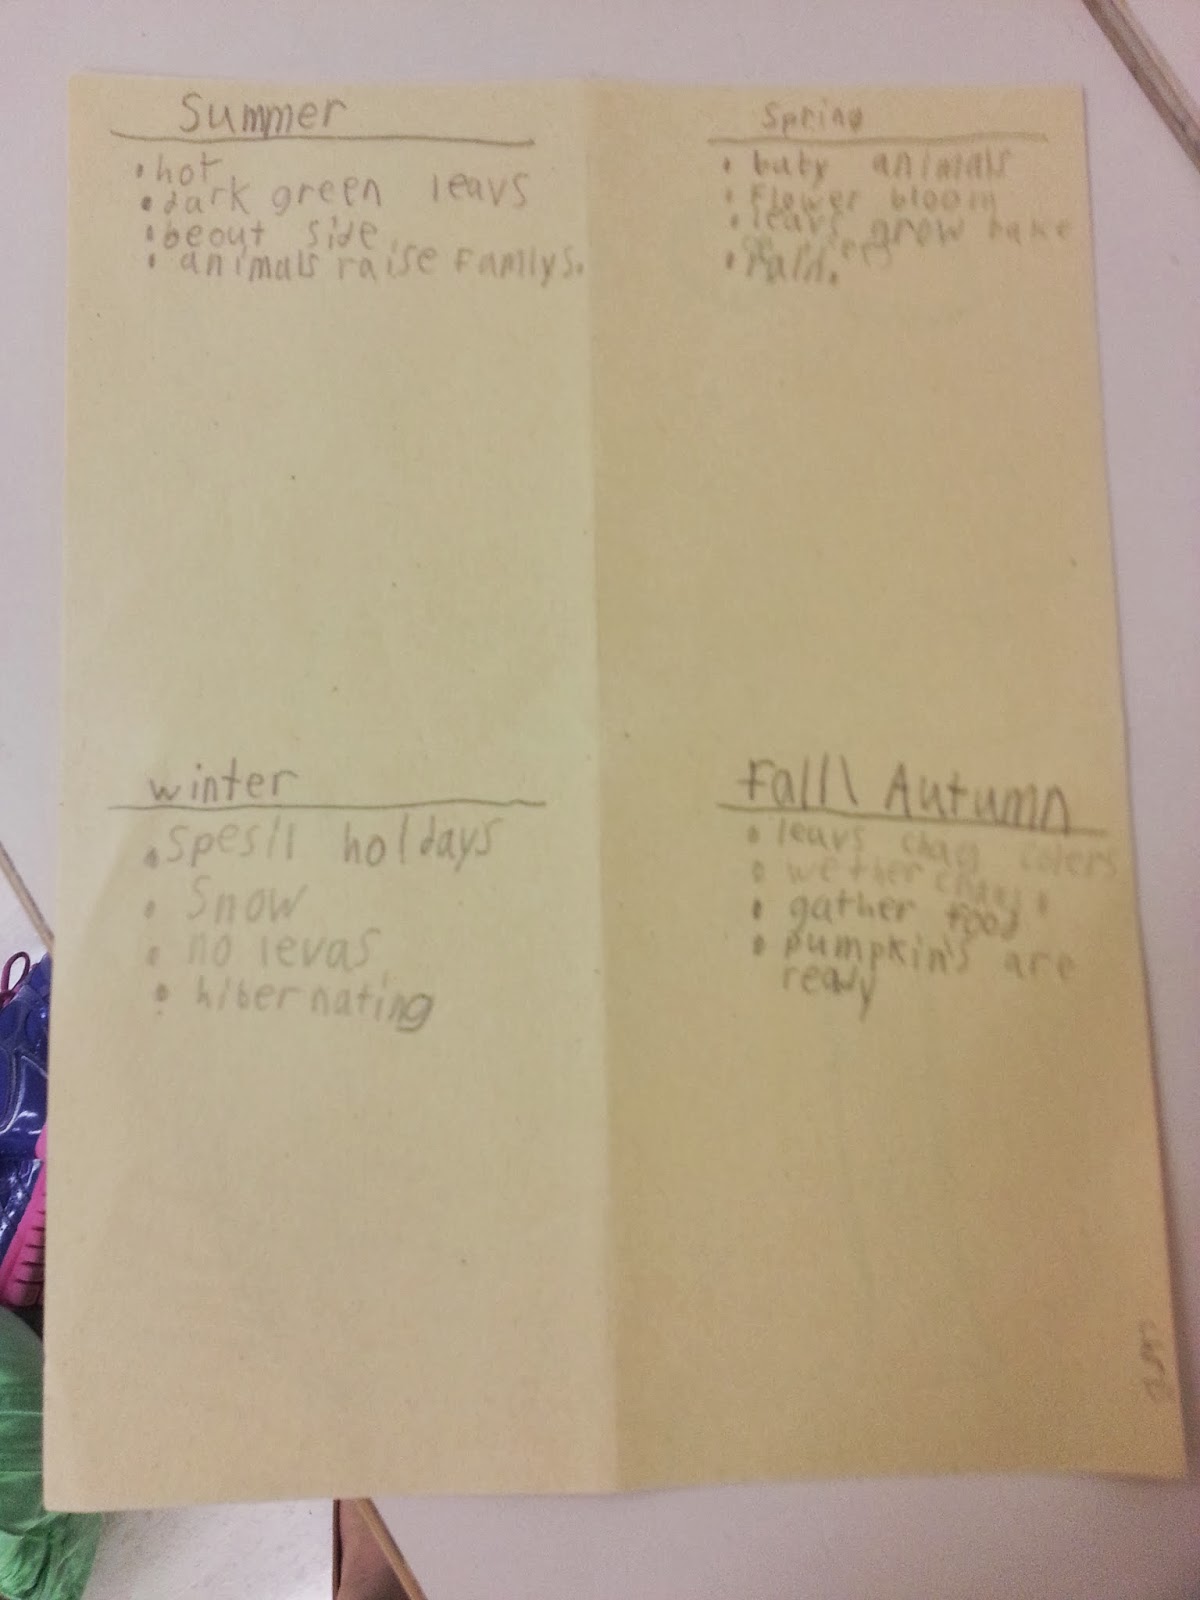 Summer
• hot
• dark green leavs
• beout side
• animals raise Familys.
Spring
• baby animals
• Flower bloom
• leavs grow bake
on trees
• rain.
winter
• spesll holdays
• Snow
• no levas
• hibernating
Fall\ Autumn
• leavs chag colers
• wether change
• gather food
• pumpkin's are
ready